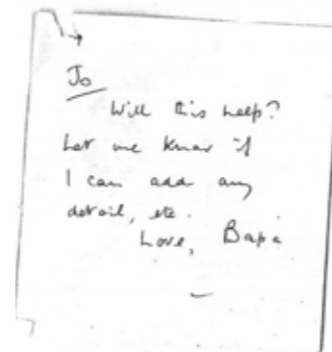 Jo
Will this help?
Let me know if
I can add any
detail, etc.
Love, Bapa